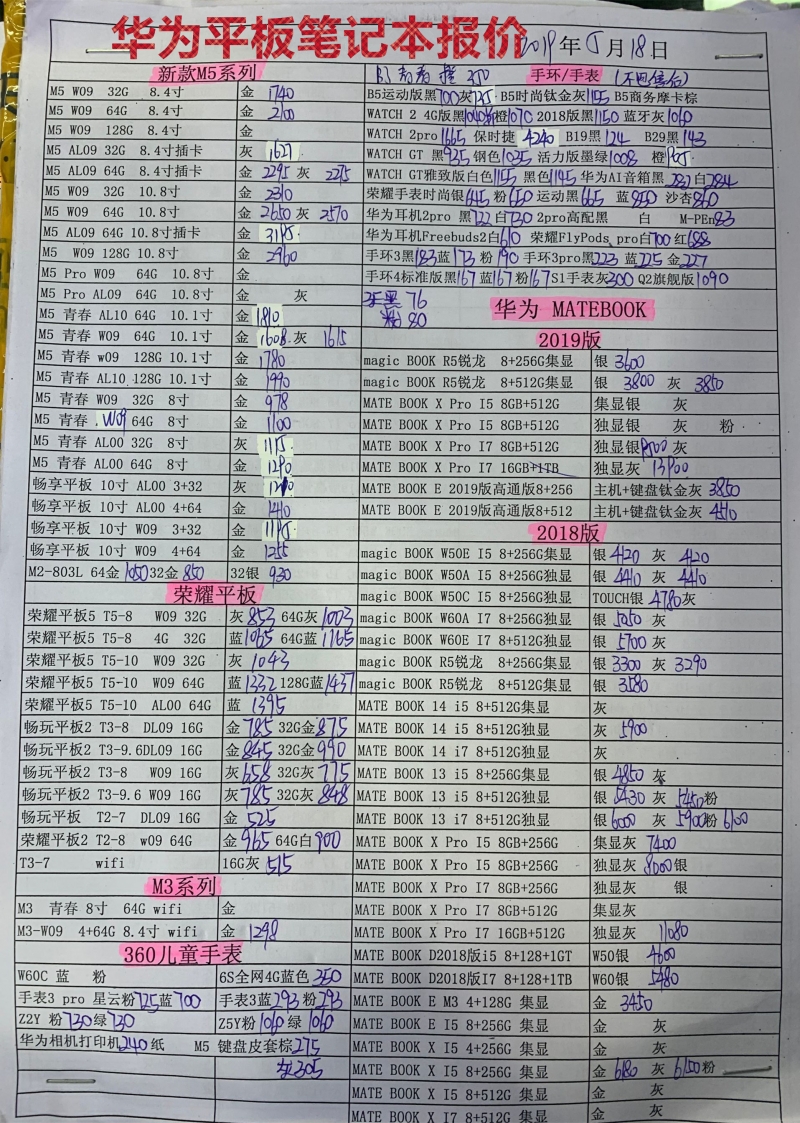 华为平板笔记本报价
2019年5月18日
新款M5系列
M5 W09 32G 8.4寸 金 1740
M5 W09 64G 8.4寸 金 2100
M5 W09 128G 8.4寸 金
M5 AL09 32G 8.4寸插卡 灰 1627
M5 AL09 64G 8.4寸插卡 金 2295 灰 2275
M5 W09 32G 10.8寸 金 2310
M5 W09 64G 10.8寸 金 2650 灰 2570
M5 AL09 64G 10.8寸插卡 金
M5 W09 128G 10.8寸 金 2960
M5 Pro W09 64G 10.8寸 金
M5 Pro AL09 64G 10.8寸 灰
M5 青春 AL10 64G 10.1寸 金 1810
M5 青春 W09 64G 10.1寸 金 1608 灰 1615
M5 青春 w09 128G 10.1寸 金 1780
M5 青春 AL10 128G 10.1寸 金 1990
M5 青春 W09 32G 8寸 金 978
M5 青春 W09 64G 8寸 金 1100
M5 青春 AL00 32G 8寸 灰
M5 青春 AL00 64G 8寸 金 1290
畅享平板 10寸 AL00 3+32 灰
畅享平板 10寸 AL00 4+64 金 1410
畅享平板 10寸 W09 3+32 金
畅享平板 10寸 W09 4+64 金 1255
M2-803L 64金 1050 32金 850 32银 930
荣耀平板
荣耀平板5 T5-8 W09 32G 灰 853 64G灰 1003
荣耀平板5 T5-8 4G 32G 蓝 1065 64G蓝 1165
荣耀平板5 T5-10 W09 32G 灰 1043
荣耀平板5 T5-10 W09 64G 蓝 1232 128G蓝 1437
荣耀平板5 T5-10 AL00 64G 蓝 1395
畅玩平板2 T3-8 DL09 16G 金 785 32G金 875
畅玩平板2 T3-9.6DL09 16G 金 845 32G金 990
畅玩平板2 T3-8 W09 16G 灰 658 32G灰 775
畅玩平板2 T3-9.6 W09 16G 灰 785 32G灰 848
畅玩平板 T2-7 DL09 16G 金 525
荣耀平板2 T2-8 w09 64G 金 965 64G白 900
T3-7 wifi 16G灰 515
M3系列
M3 青春 8寸 64G wifi 金
M3-W09 4+64G 8.4寸 wifi 金 1298
360儿童手表
W60C 蓝 粉 6S全网4G蓝色 350
手表3 pro 星云粉 725 蓝 700 手表3蓝 293 粉 293
Z2Y 粉 730 绿 730 Z5Y粉 1060 绿 1060
华为相机打印机 240 纸 M5 键盘皮套棕 275
灰305
B3 350
手环/手表 (不四售后)
B5运动版黑 700 灰 B5时尚钛金灰 1155 B5商务摩卡棕
WATCH 2 4G版黑 橙 1070 2018版黑 1150 蓝牙灰 1060
WATCH 2pro 1665 保时捷 4240 B19黑 124 B29黑 143
WATCH GT 黑 935 钢色 1035 活力版墨绿 1008 橙
WATCH GT雅致版白色 1155 黑色 1145 华为AI音箱黑 282 白 284
荣耀手表时尚银 645 粉 650 运动黑 665 蓝 沙杏 860
华为耳机2pro 黑 722 白 730 2pro高配黑 白 M-PEn 83
华为耳机Freebuds2白 610 荣耀FlyPods pro白 700 红 688
手环3黑 183 蓝 173 粉 190 手环3pro黑 223 蓝 225 金 227
手环4标准版黑 167 蓝 167 粉 167 S1手表灰 300 Q2旗舰版 1090
黑 76
粉 80
华为 MATEBOOK
2019版
magic BOOK R5锐龙 8+256G集显 银 3600
magic BOOK R5锐龙 8+512G集显 银 3800 灰 3850
MATE BOOK X Pro I5 8GB+512G 集显银 灰
MATE BOOK X Pro I5 8GB+512G 独显银 灰 粉
MATE BOOK X Pro I7 8GB+512G 独显银 灰
MATE BOOK X Pro I7 16GB+1TB 独显灰 13900
MATE BOOK E 2019版高通版8+256 主机+键盘钛金灰 3850
MATE BOOK E 2019版高通版8+512 主机+键盘钛金灰 4510
2018版
magic BOOK W50E I5 8+256G集显 银 4120 灰 4120
magic BOOK W50A I5 8+256G独显 银 4410 灰 4410
magic BOOK W50C I5 8+256G独显 TOUCH银 4780 灰
magic BOOK W60A I7 8+256G独显 银 5050 灰
magic BOOK W60E I7 8+512G独显 银 5700 灰
magic BOOK R5锐龙 8+256G集显 银 3300 灰 3290
magic BOOK R5锐龙 8+512G集显 银 3580
MATE BOOK 14 i5 8+512G集显 灰
MATE BOOK 14 i5 8+512G独显 灰 5900
MATE BOOK 14 i7 8+512G独显 灰
MATE BOOK 13 i5 8+256G集显 银 4850 灰
MATE BOOK 13 i5 8+512G独显 银 5430 灰 5450 粉
MATE BOOK 13 i7 8+512G独显 银 6000 灰 5900 粉 6100
MATE BOOK X Pro I5 8GB+256G 集显灰 7400
MATE BOOK X Pro I5 8GB+256G 独显灰 8000 银
MATE BOOK X Pro I7 8GB+256G 独显灰 银
MATE BOOK X Pro I7 8GB+512G 集显灰
MATE BOOK X Pro I7 16GB+512G 独显灰 11080
MATE BOOK D2018版i5 8+128+1GT W50银 4600
MATE BOOK D2018版I7 8+128+1TB W60银 5480
MATE BOOK E M3 4+128G 集显 金 3450
MATE BOOK E I5 8+256G 集显 金 灰
MATE BOOK X I5 4+256G 集显 金 灰
MATE BOOK X I5 8+256G 集显 金 6180 灰 6150 粉
MATE BOOK X I5 8+512G 集显 金 灰
MATE BOOK X I7 8+512G 集显 金 灰